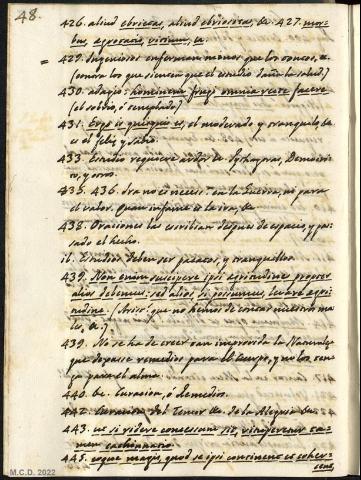 48.
426. aliud ebrietas, aliud ebriositas, &. 427. mor-
bus, aegrotatio, vitium, &.
= 429. Ingeniosos enferman menos que los rudos, &.
(contra los que dicen que el estudio daña la salud.)
430. adagio: hominem frugi omnia recte facere.
(el sobrio, ó templado.)
431. quisquis est, el moderado y tranquilo, &.
es el feliz, y sabio.
433. Estudio requiere ardor &. Pythagoras, Democri-
to, y otros.
435. 436. Ira no es necess.ª en la Guerra, ni para
el valor. Quan infame es la ira, &.
438. Oraciones se escribian despues de espacio, y pa-
sado el hecho.
it. Estudios deben ser pacatos, y tranquillos.
439. Non enim suscipere ipsi aegritudines propter
alios debemus; sed alios, si possumus, levare aegri-
tudine. (Avis.º que no hemos de contar nuestros ma-
les, &.)
439. No se ha de creer tan improvida la Naturaleza
que dexase remedios para el cuerpo, y no los ten-
ga para el alma.
440. &c. Curacion, ó Remedios.
442. Curacion del Temor &c. de la Alegria &c.
443. ut si videre concessum sit, vituperetur ta-
men cachinnatio
445. eoque magis, quod se ipsi continent et coher-
cent,
M.C.D. 2022